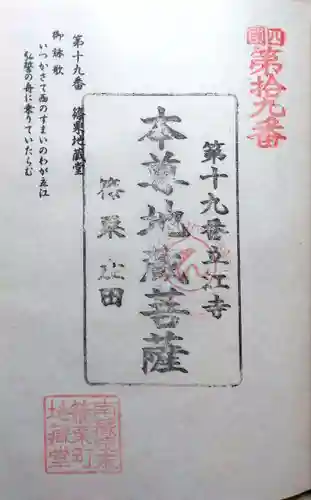 四國
第拾九番
第十九番立江寺
本尊地蔵菩薩
篠栗 山田
第十九番 篠栗地蔵堂
御詠歌
いつかさて西のすまいのわが立江
弘誓の舟に乗りていたらむ
篠栗町
地蔵堂